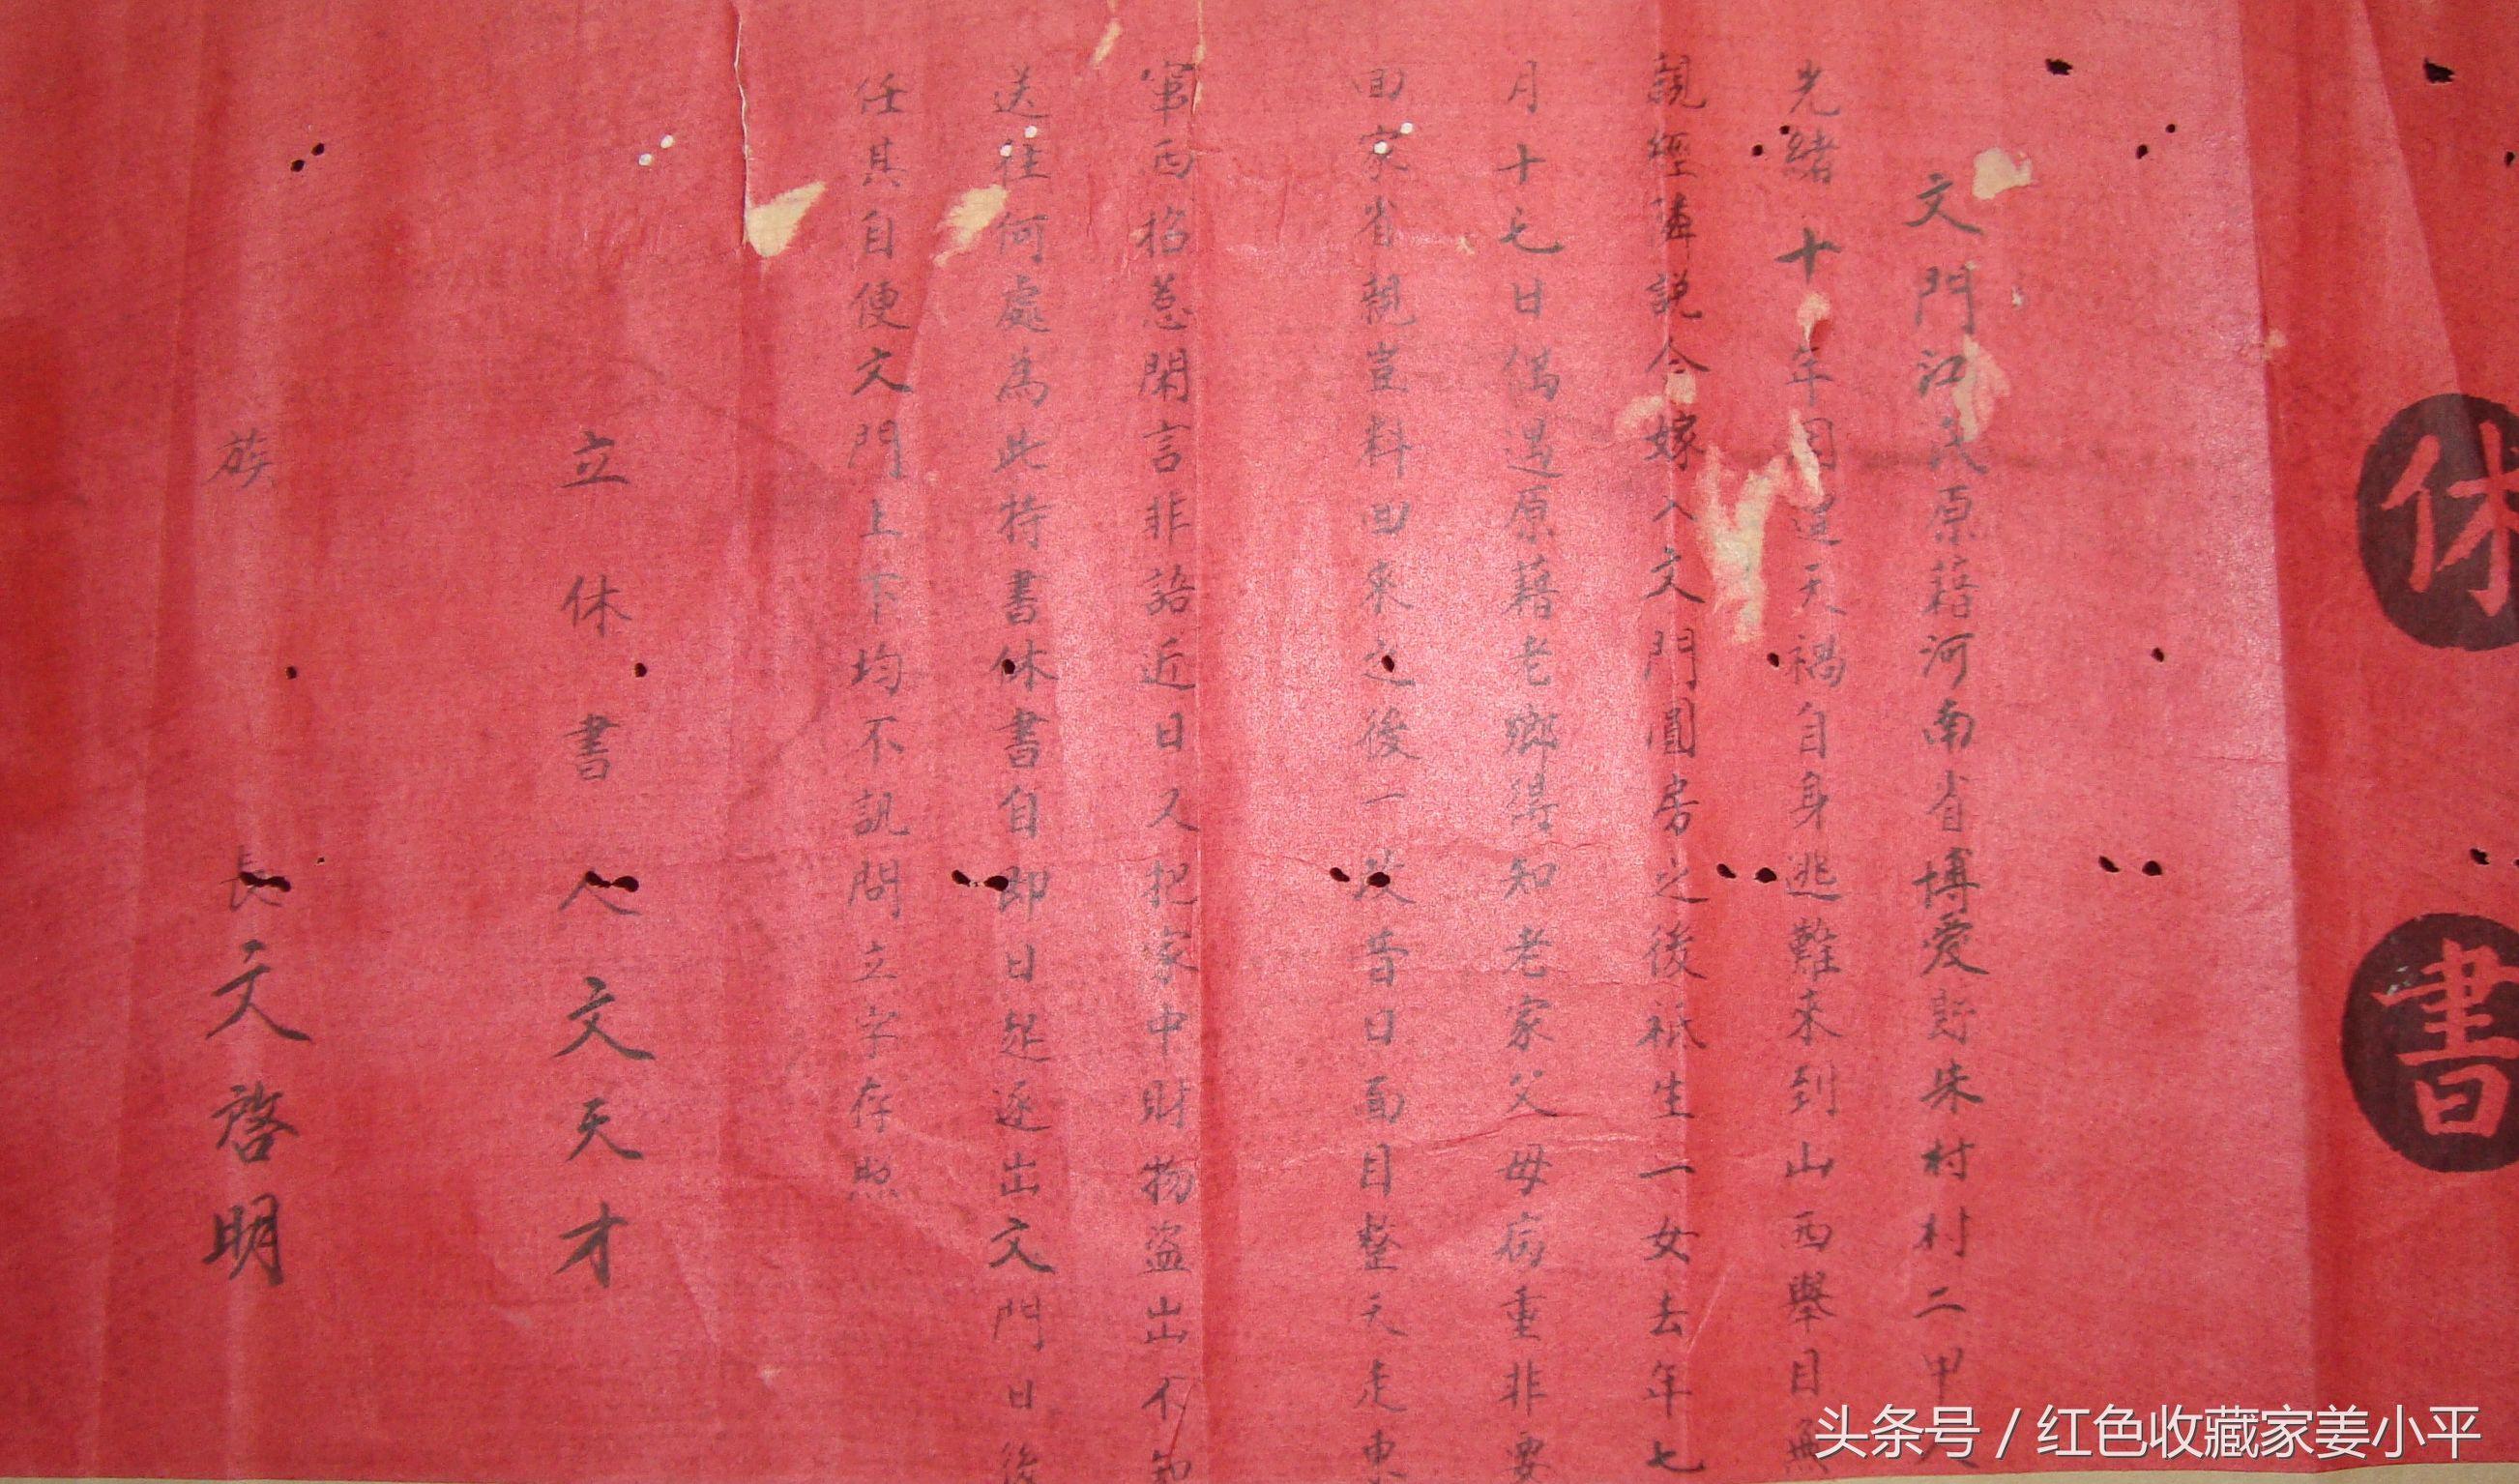 休書
文門江氏原藉河南省博愛縣朱村村二甲人
光緒十年因遭天禍自身逃難來到山西舉目無
親經隣説合嫁入文門圓房之後祇生一女去年七
月十七日偶遇原藉老鄉得知老家父母病重非要
回家省親豈料回來之後一改昔日面目整天走東
軍西招惹閑言非語近日又把家中財物盜出不知
送往何處為此持書休書自即日起逐出文門日後
任其自便文門上下均不訊問立字存照
立休書人文天才
族長文啓明
头条号 / 红色收藏家姜小平